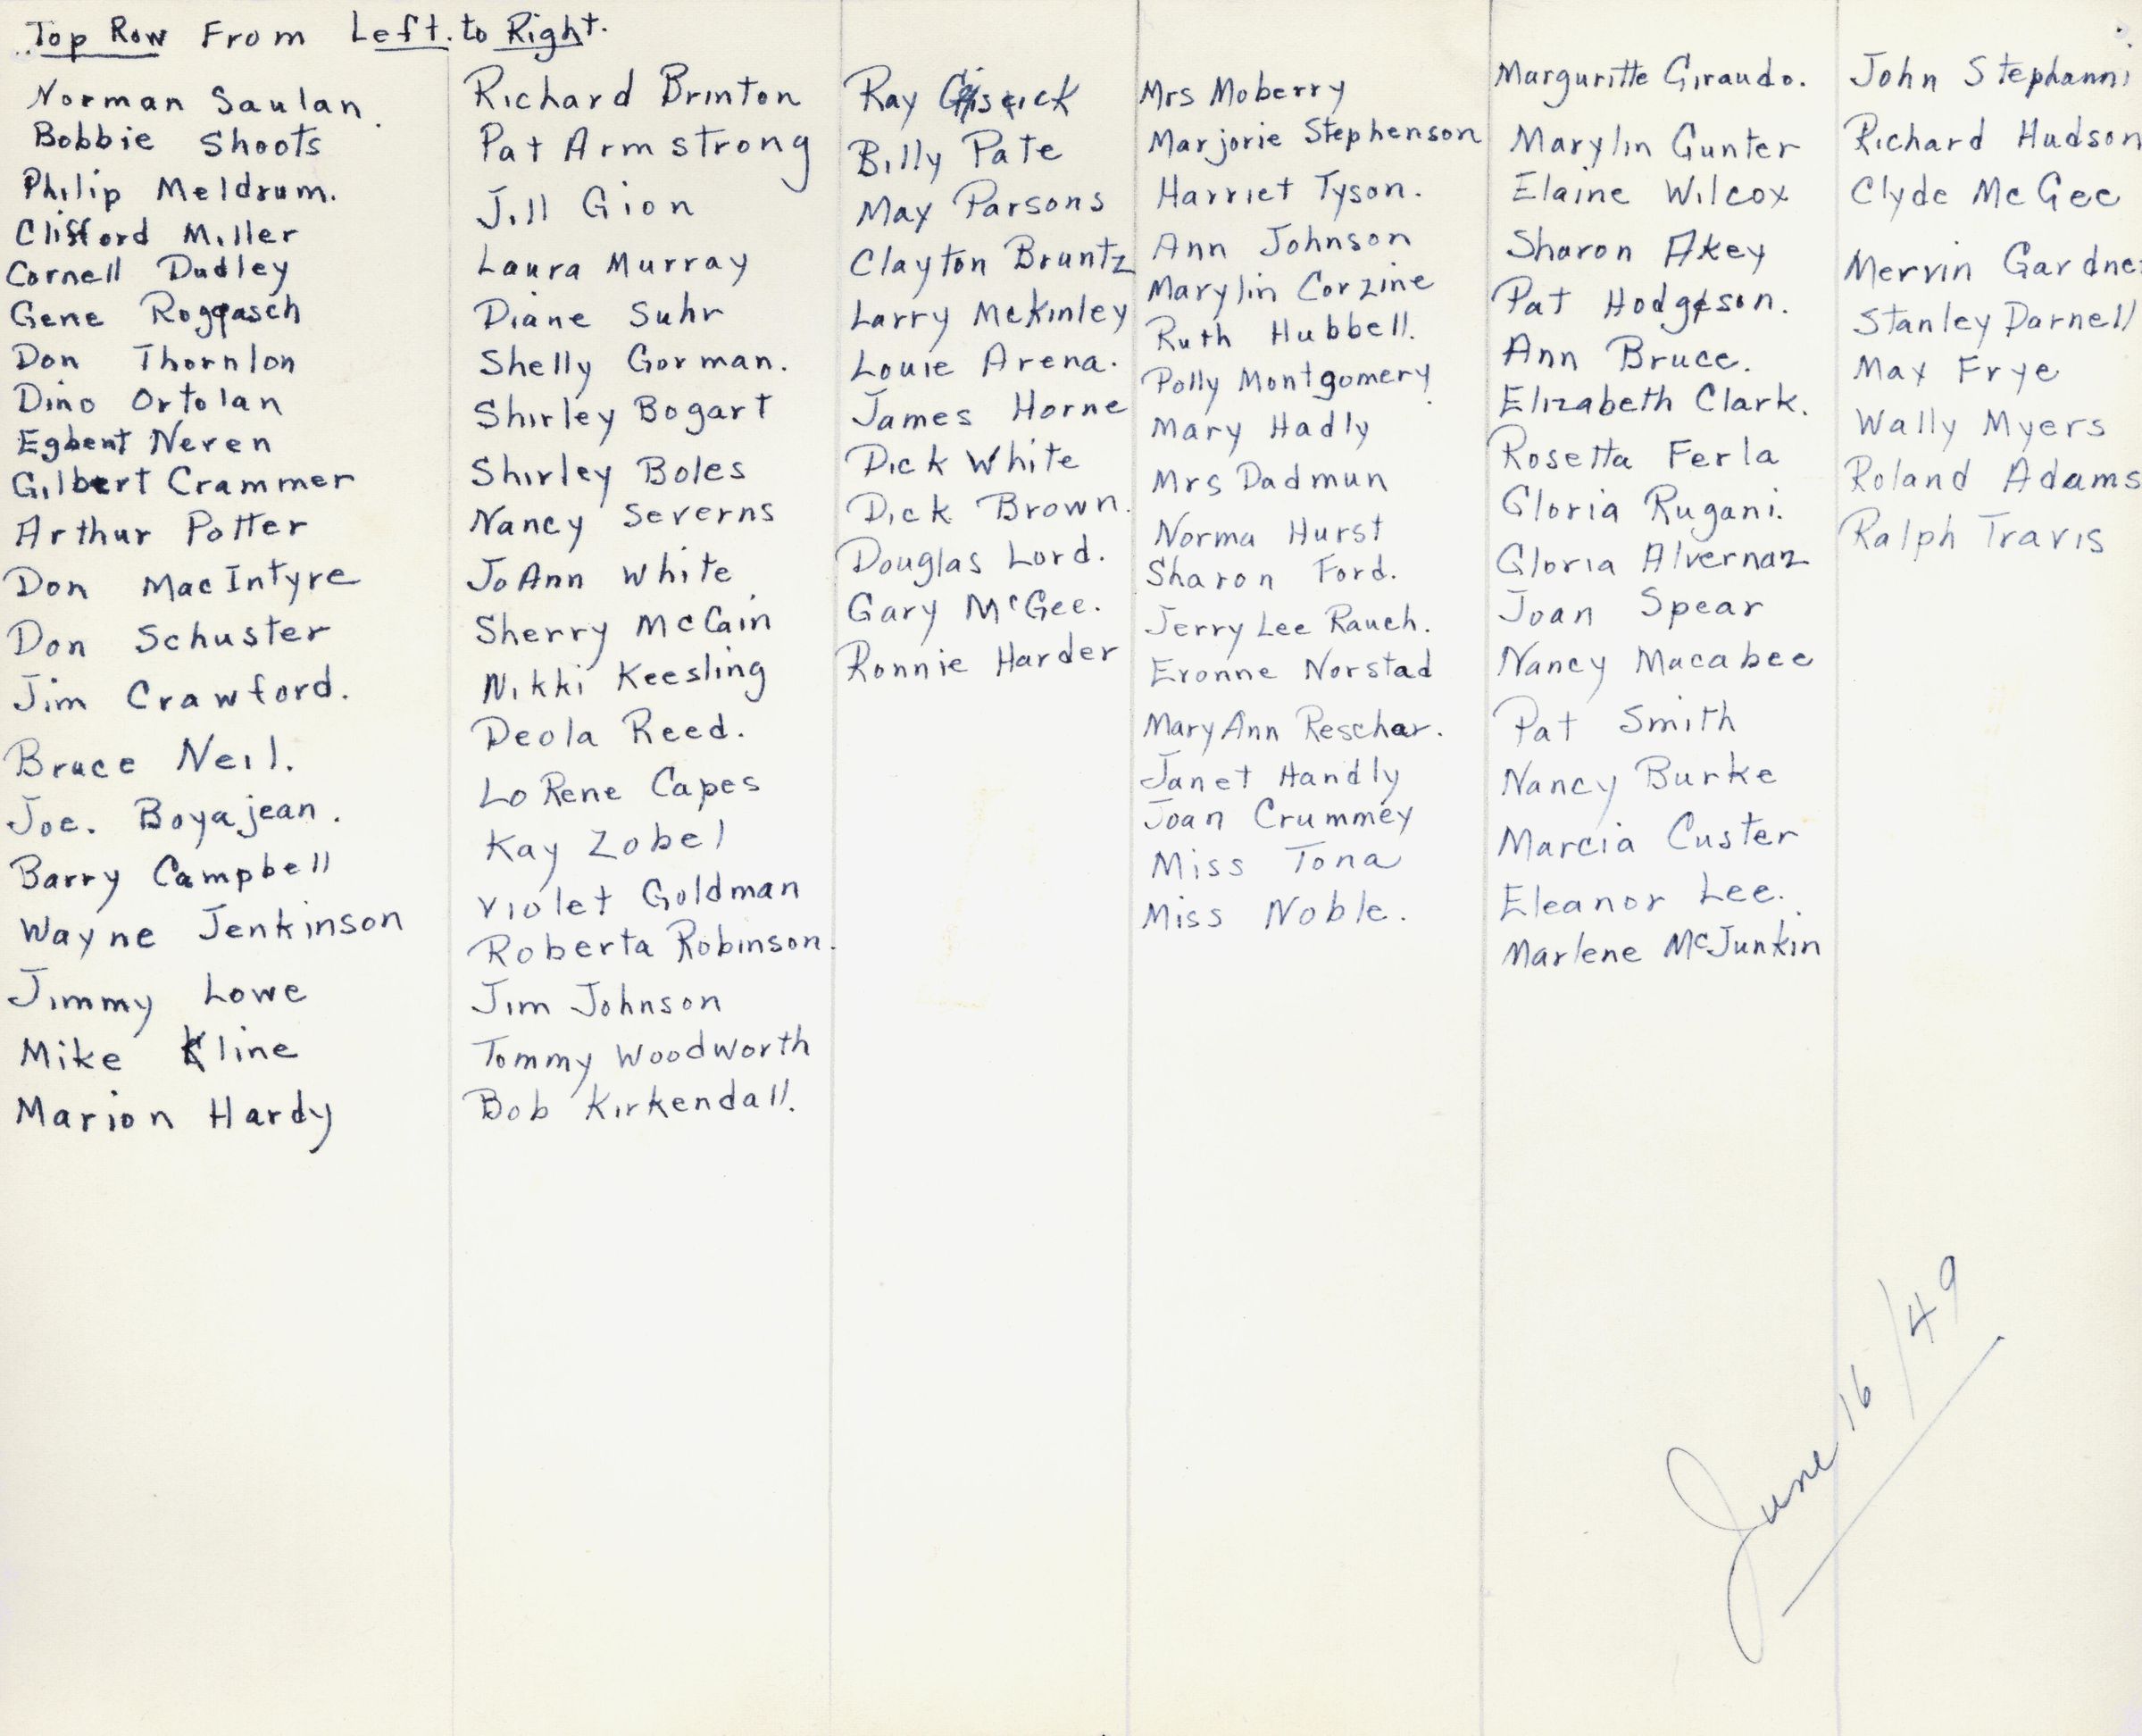 Top Row From Left to Right.
Norman Saulan.
Bobbie Shoots
Philip Meldrum.
Clifford Miller
Cornell Dudley
Gene Roggasch
Don Thornlon
Dino Ortolan
Egbent Neren
Gilbert Crammer
Arthur Potter
Don MacIntyre
Don Schuster
Jim Crawford.
Bruce Neil.
Joe. Boyajean.
Barry Campbell
Wayne Jenkinson
Jimmy Lowe
Mike Kline
Marion Hardy
Richard Brinton
Pat Armstrong
Jill Gion
Laura Murray
Diane Suhr
Shelly Gorman.
Shirley Bogart
Shirley Boles
Nancy Severns
JoAnn White
Sherry McCain
Nikki Keesling
Deola Reed.
LoRene Capes
Kay Zobel
Violet Goldman
Roberta Robinson.
Jim Johnson
Tommy Woodworth
Bob Kirkendall.
Ray
Billy Pate
Max Parsons
Clayton Bruntz
Larry McKinley
Louie Arena.
James Horne
Dick White
Dick Brown.
Douglas Lord.
Gary McGee.
Ronnie Harder
Mrs Moberry
Marjorie Stephenson
Harriet Tyson.
Ann Johnson
Marylin Corzine
Ruth Hubbell.
Polly Montgomery
Mary Hadly
Mrs Dadmun
Norma Hurst
Sharon Ford.
Jerry Lee Rauch.
Evonne Norstad
Mary Ann Reschar.
Janet Handly
Joan Crummey
Miss Tona
Miss Noble.
Marguritte Giraudo.
Marylin Gunter
Elaine Wilcox
Sharon Akey
Pat Hodgson.
Ann Bruce.
Elizabeth Clark.
Rosetta Ferla
Gloria Rugani.
Gloria Alvernaz
Joan Spear
Nancy Macabee
Pat Smith
Nancy Burke
Marcia Custer
Eleanor Lee.
Marlene McJunkin
John Stephanni
Richard Hudson
Clyde McGee
Mervin Gardne
Stanley Darnell
Max Frye
Wally Myers
Roland Adams
Ralph Travis
June 16/49